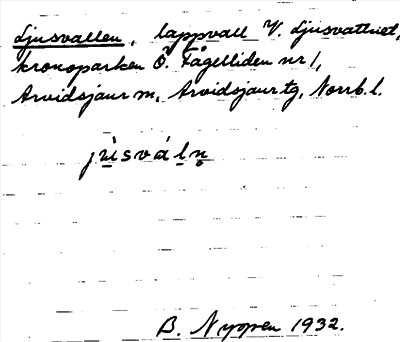 Ljusvallen, lappvall V. Ljusvattnet,
kronoparken Ö. Fågelliden nr 1,
Arvidsjaur sn, Arvidsjaur tg, Norrb. l.
jʉ̀sváln̥
B. Nyqren 1932.